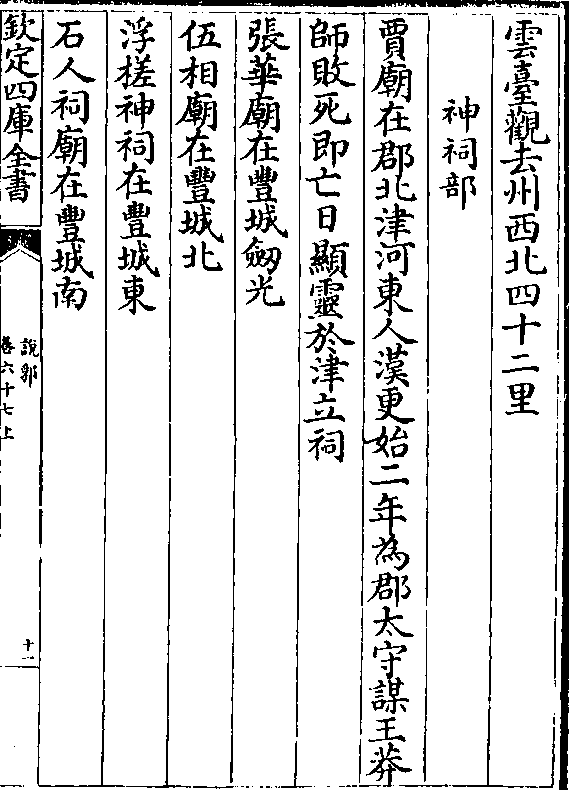 雲臺觀去州西北四十二里
神祠部
賈廟在郡北津河東人漢更始二年為郡太守謀王莽
師敗死即亡日顯靈於津立祠
張華廟在豐城劒光
伍相廟在豐城北
浮槎神祠在豐城東
石人祠廟在豐城南
欽定四庫全書
說郛
卷六十七上
十一